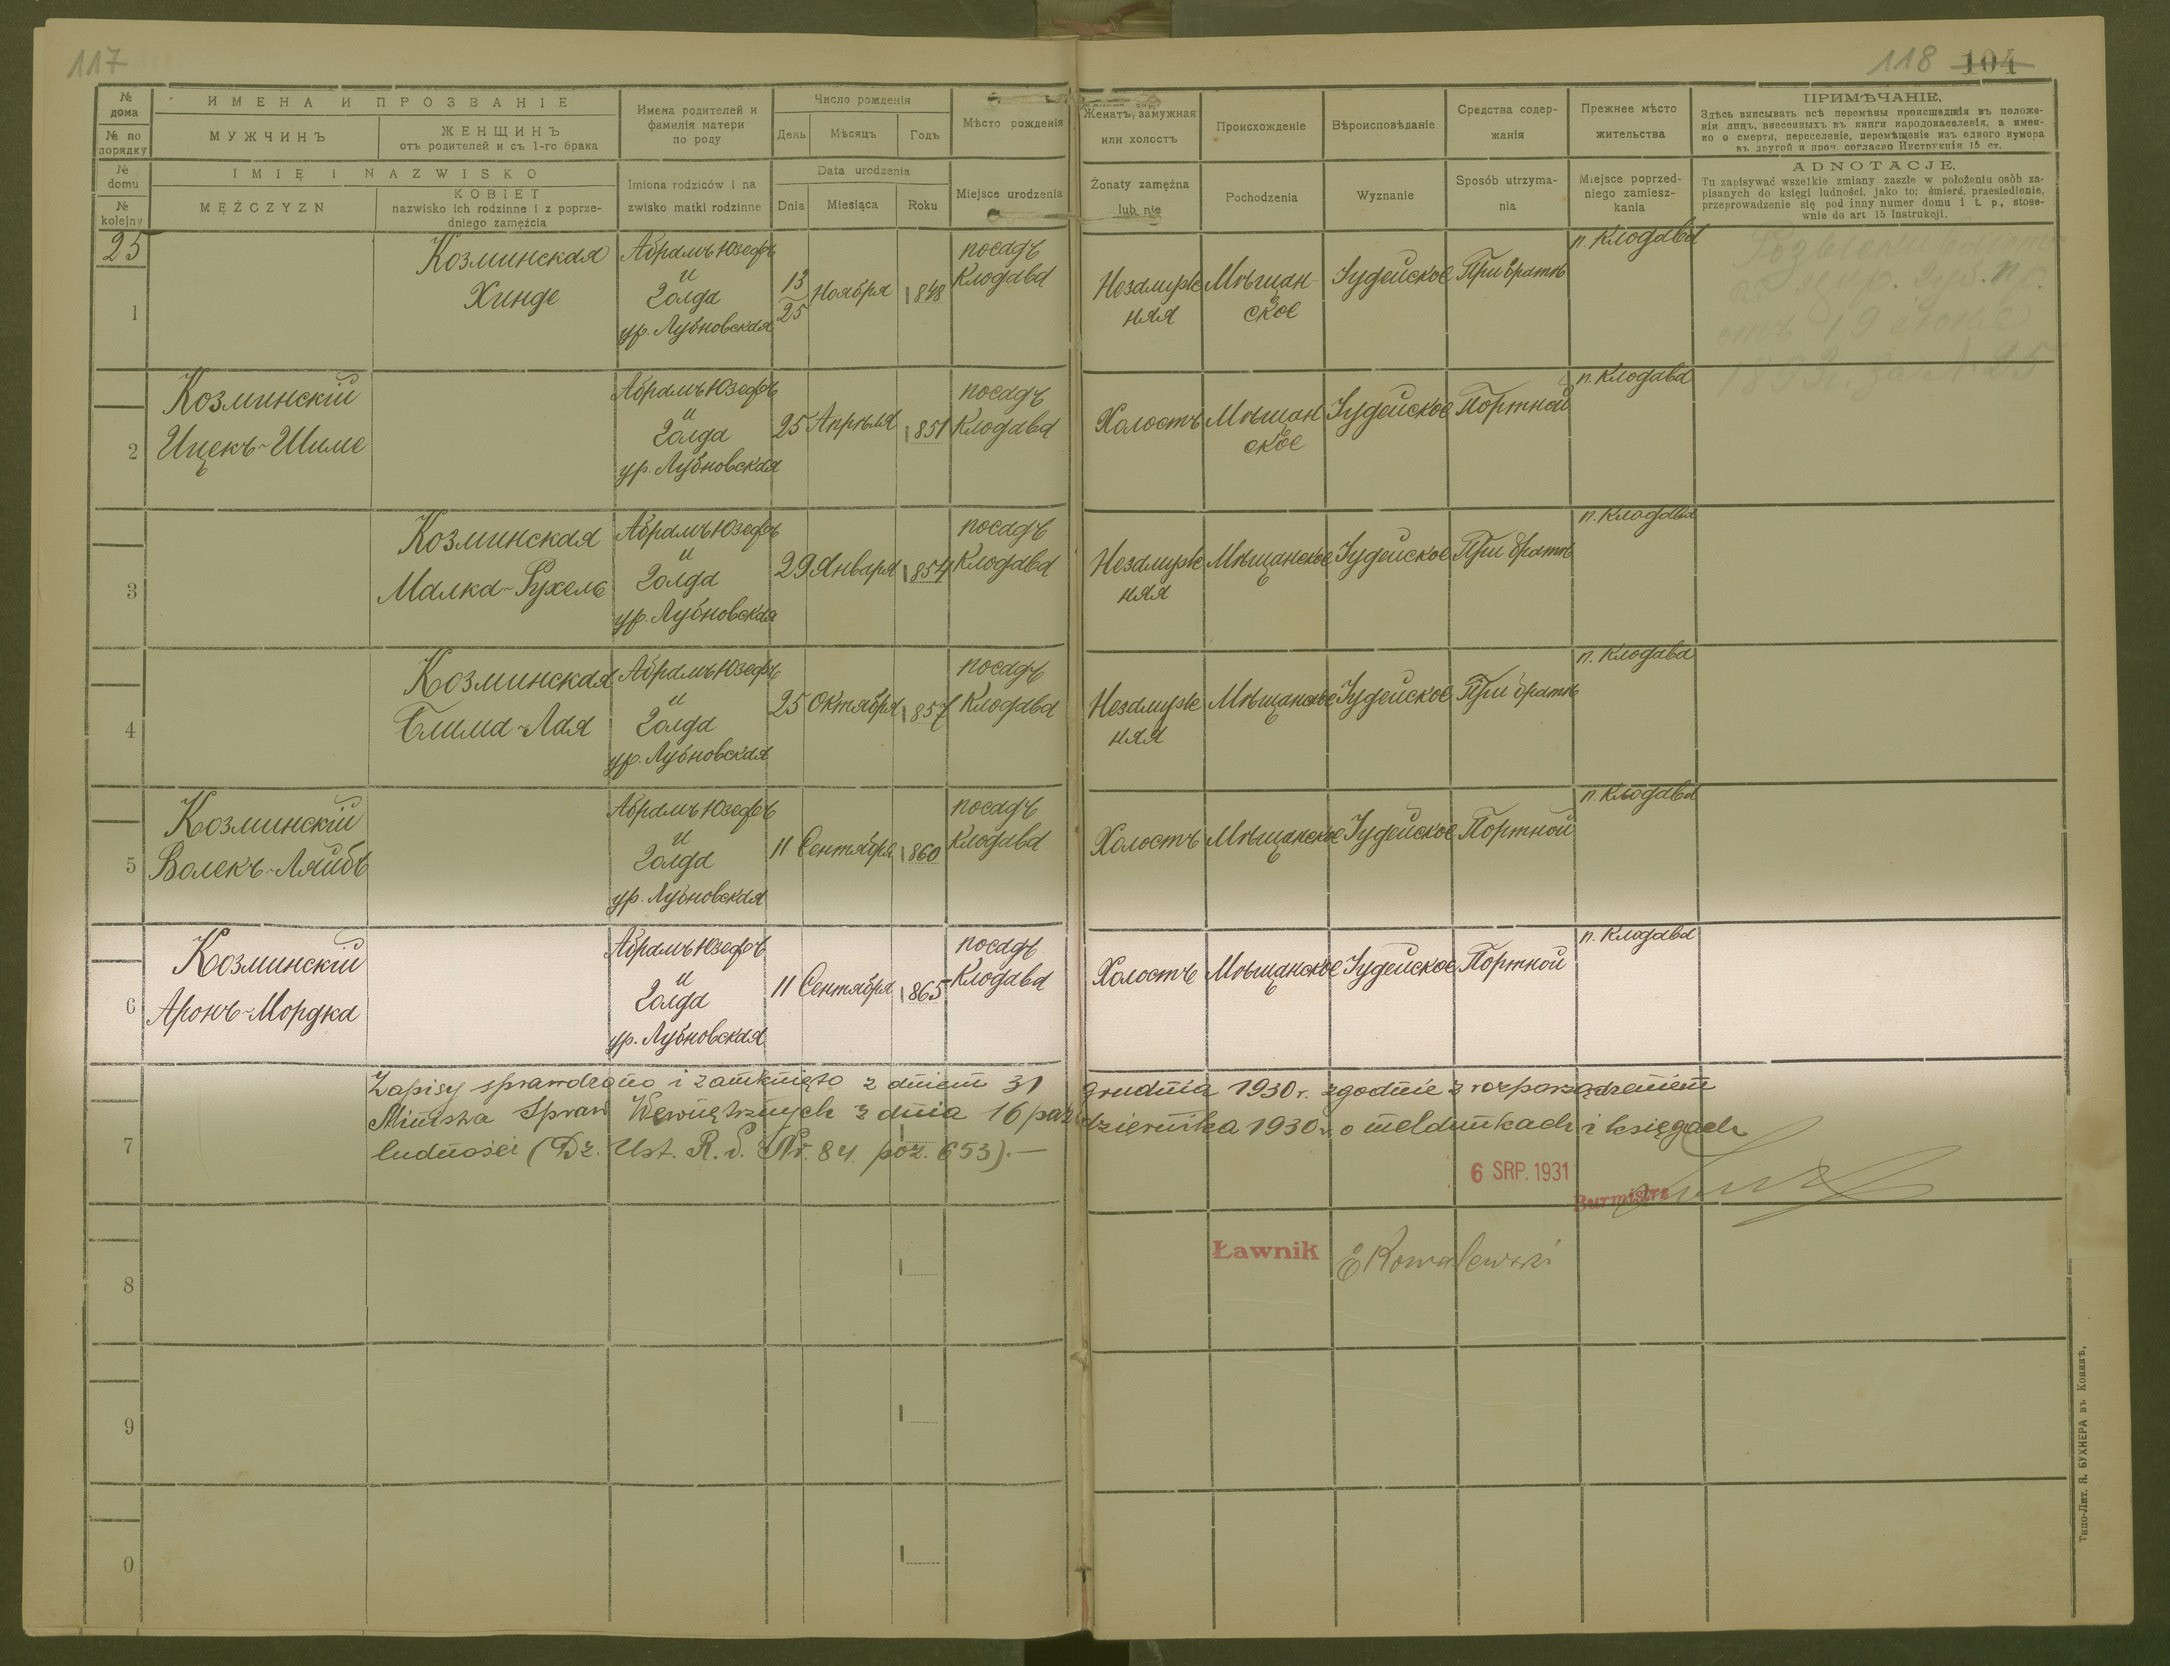 117
118 104
№ дома
№ по порядку
ИМЕНА И ПРОЗВАНІЕ
МУЖЧИНЪ
ЖЕНЩИНЪ
отъ родителей и съ 1-го брака
Имена родителей и
фамилія матери
по роду
Число рожденія
День
Мѣсяцъ
Годъ
Мѣсто рожденія
Женатъ, замужная
или холостъ
Происхожденіе
Вѣроисповѣданіе
Средства содер-
жанія
Прежнее мѣсто
жительства
ПРИМѢЧАНІЕ.
Здѣсь вписывать всѣ перемѣны происшедшія въ положе-
ніи лицъ, внесенныхъ въ книги народонаселенія, а имен-
но о смерти, переселеніе, перемѣщеніе изъ одного нумера
въ другой и проч. согласно Инструкціи 15 ст.
№ domu
№ kolejny
IMIĘ I NAZWISKO
MĘŻCZYZN
KOBIET
nazwisko ich rodzinne i z poprze-
dniego zamężcia
Imiona rodziców i na
zwisko matki rodzinne
Data urodzenia
Dnia
Miesiąca
Roku
Miejsce urodzenia
Żonaty zamężna
lub nie
Pochodzenia
Wyznanie
Sposób utrzyma-
nia
Miejsce poprzed-
niego zamiesz-
kania
ADNOTACJE.
Tu zapisywać wszelkie zmiany zaszłe w położeniu osób za-
pisanych do księgi ludności, jako to: śmierć, przesiedlenie,
przeprowadzenie się pod inny numer domu i t. p., stose-
wnie do art 15 Instrukcji.
25
1
Козминская
Хинде
Абрамъ Юзефъ
и
Голда
ур. Лубновская
13
25
Ноября
1848
посадъ
Клодава
Незамуж
няя
Мѣщан-
ское
Іудейское
При братѣ
п. Клодава
отъ 19
2
Козминскій
Ицекъ-Шиме
Абрамъ Юзефъ
и
Голда
ур. Лубновская
25 Апрѣля 1851
посадъ
Клодава
Холостъ
Мѣщан
ское
Іудейское
Портной
п. Клодава
3
Козминская
Малка-Рухель
Абрамъ Юзефъ
и
Голда
ур. Лубновская
29 Января 1854
посадъ
Клодава
Незамуж
няя
Мѣщанское
Іудейское
При братѣ
п. Клодава
4
Козминская
Блима-Лая
Абрамъ Юзефъ
и
Голда
ур. Лубновская
25 Октября 1857
посадъ
Клодава
Незамуж
няя
Мѣщанское
Іудейское
При братѣ
п. Клодава
5
Козминскій
Волекъ-Ляйбъ
Абрамъ Юзефъ
и
Голда
ур. Лубновская
11 Сентября 1860
посадъ
Клодава
Холостъ
Мѣщанское
Іудейское
Портной
п. Клодава
6
Козминскій
Аронъ-Мордка
Абрамъ Юзефъ
и
Голда
ур. Лубновская
11 Сентября 1865
посадъ
Клодава
Холостъ
Мѣщанское
Іудейское
Портной
п. Клодава
7
Zapisy sprawdzono i zamknięto z dniem 31 grudnia 1930 r. zgodnie z rozporządzeniem
Ministra Spraw Wewnętrznych z dnia 16 października 1930 r. o meldunkach i księgach
ludności (Dz. Ust. R. P. Nr. 84. poz. 653).—
6 SRP. 1931
Burmistrz
8
Ławnik
E Kowalewski
9
0
Типо-Лит. Я. БУХНЕРА въ Конинѣ.